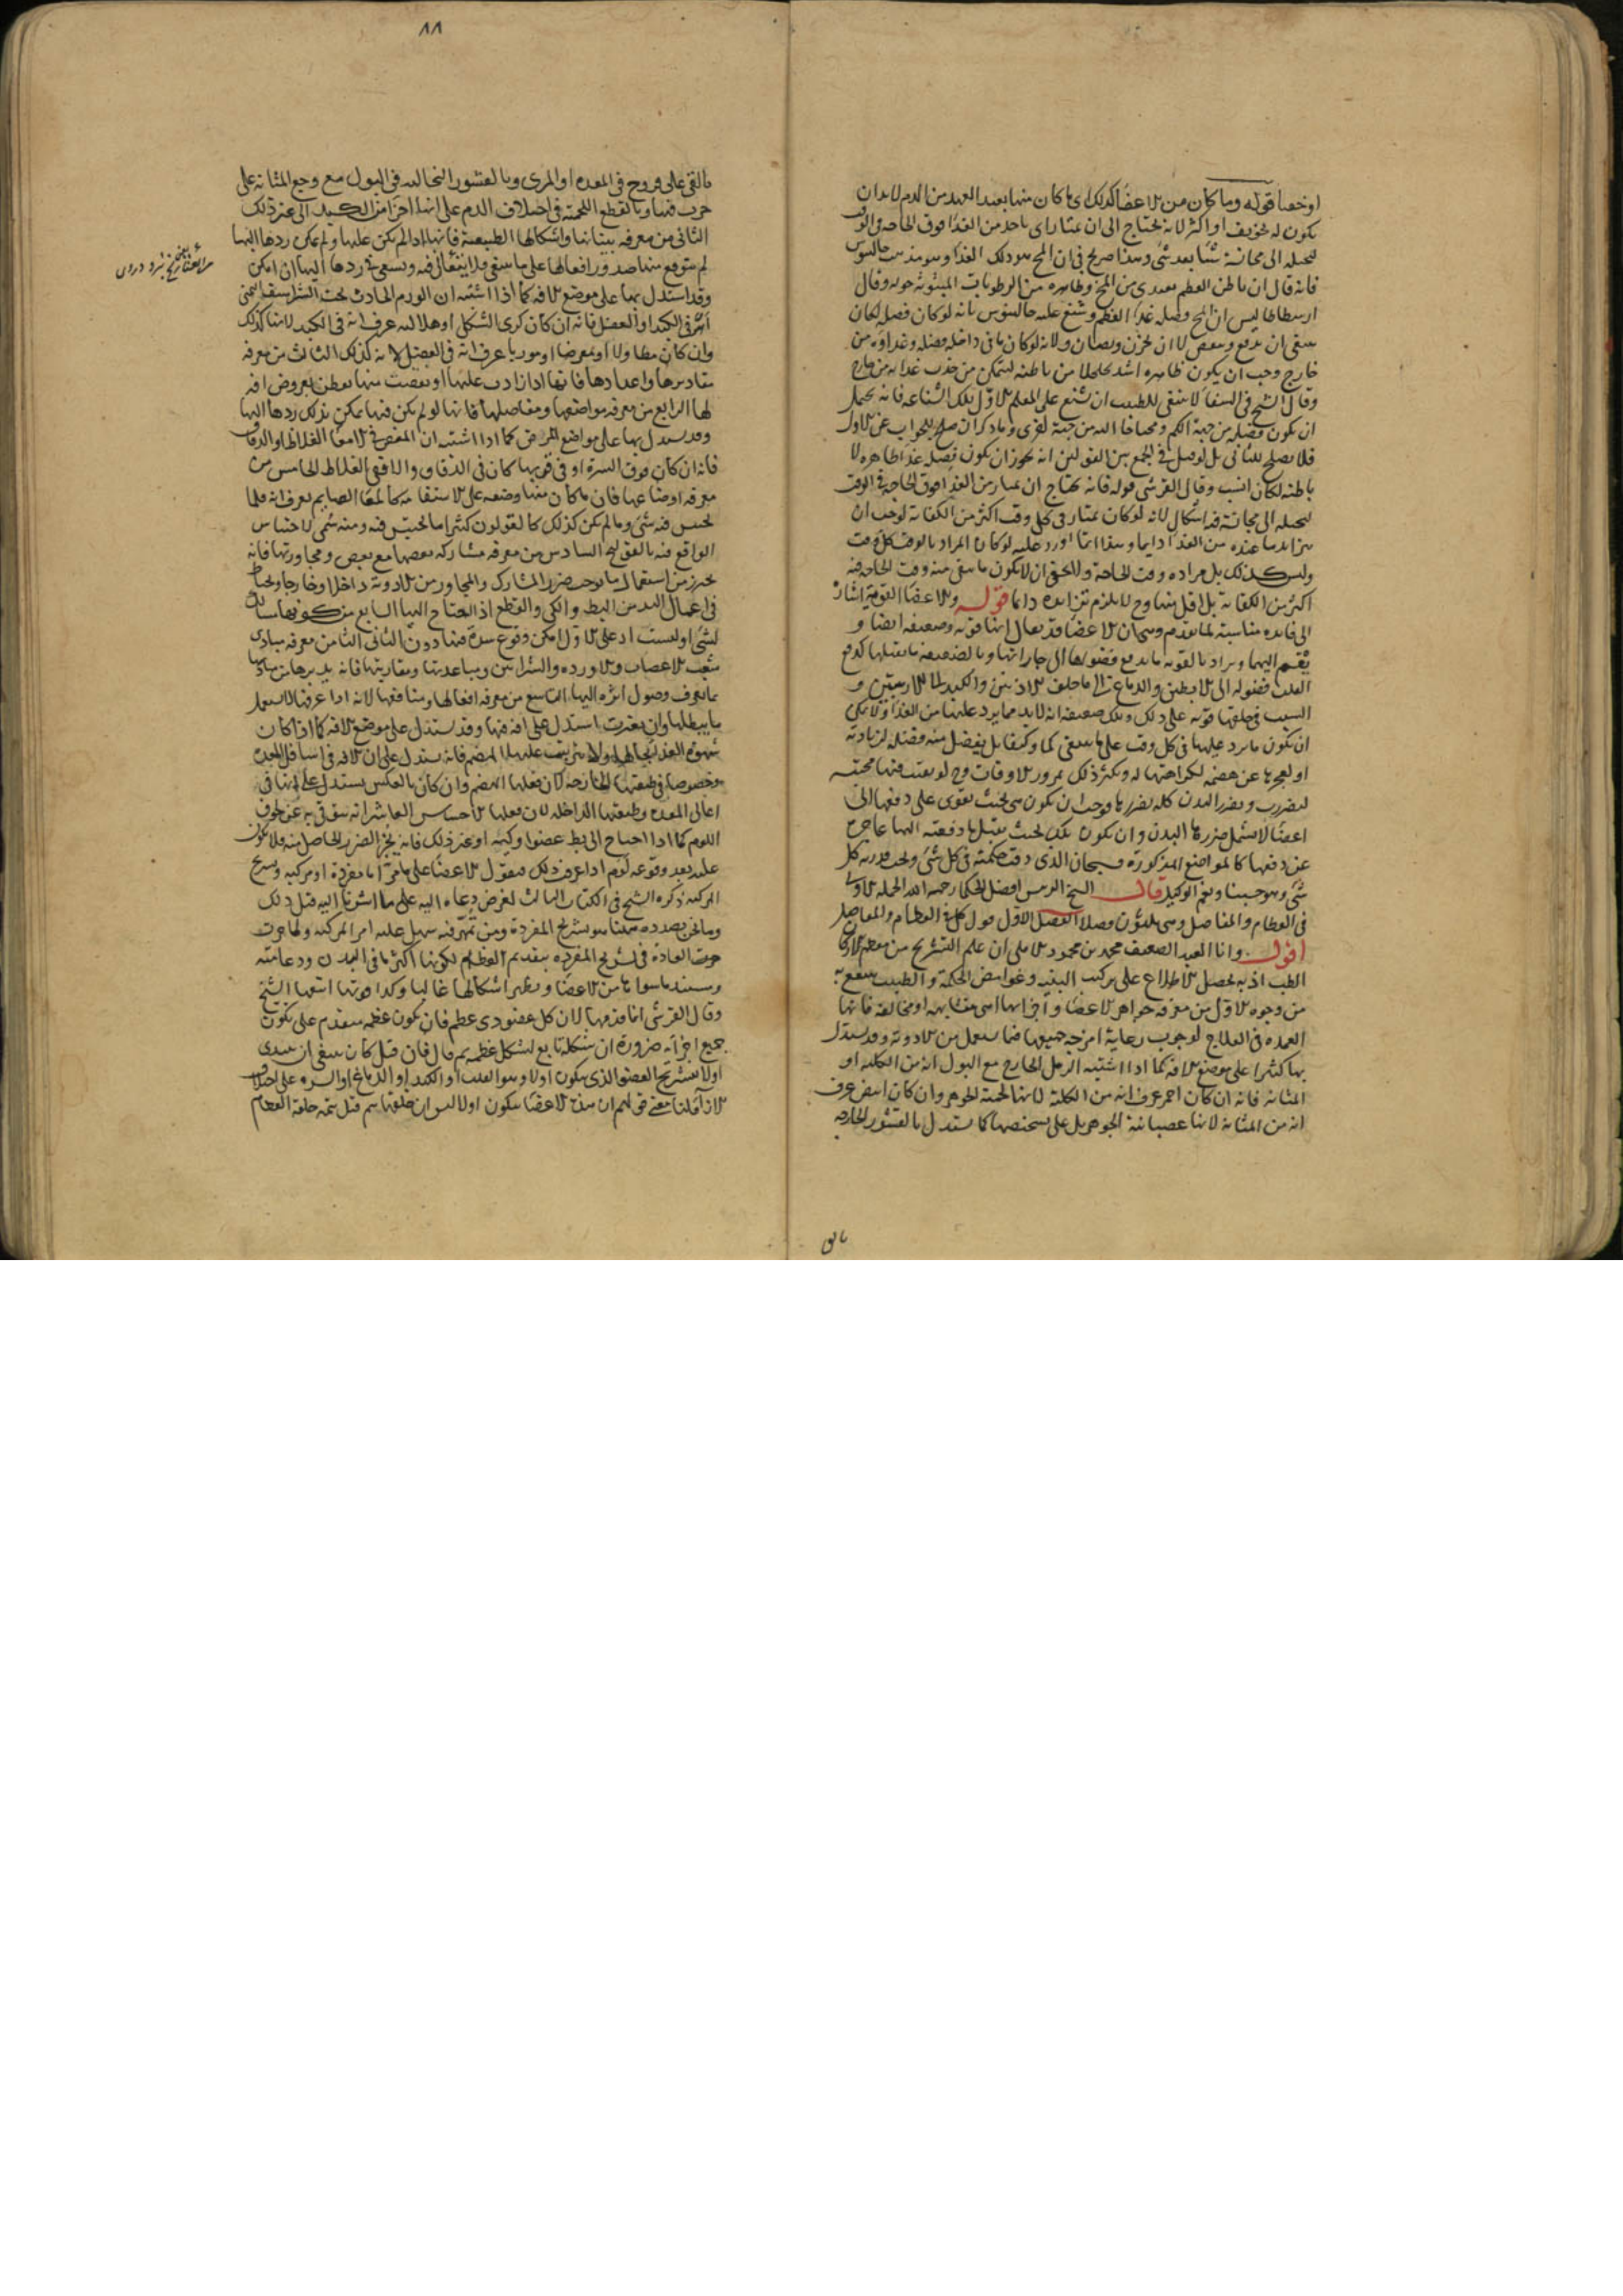 او خصا قوله وما كان من الاعضا كذلك اى ما كان منها بعيد العهد من الدم لابد ان
يكون له تجويف او اكثر لانه يحتاج الى ان يمتار اى ياخذ من الغذا فوق الحاجه فى الوقت
ليحيله الى مجانسته شيئا بعد شى وهذا صريح فى ان المخ هو ذلك الغذا وهو مذهب جالينوس
فانه قال ان باطن العظم يغتدى من المخ وظاهره من الرطوبات المبثوثة حوله وقال
ارسطاطاليس ان المخ فضلة غذا العظم وشنع عليه جالينوس بانه لو كان فضله لكان
ينبغى ان يدفع وينفض لا ان يخزن ويصان ولانه لو كان ما فى داخله فضله وغذاؤه من
خارج وجب ان يكون ظاهره اشد تخلخلا من باطنه ليتمكن من جذب غذايه من خارج
وقال الشيخ فى الشفا لا ينبغى للطبيب ان يشنع على المعلم الاول تلك الشناعه فانه يحتمل
ان يكون فضله من جهة الكم ومحتاجا اليه من جهة اخرى وما ذكر ان صلح للجواب عن الاول
فلا يصلح للثانى بل لو قيل فى الجمع بين القولين انه يجوز ان يكون فضله غذا ظاهره لا
باطنه لكان انسب وقال القرشى قوله فانه يحتاج ان يمتار من الغذا فوق الحاجة فى الوقت
ليحيله الى مجانسته فيه اشكال لانه لو كان يمتار فى كل وقت اكثر من الكفاية لوجب ان
يتزايد ما عنده من الغذا دايما وهذا انما اورد عليه لو كان المراد بالوقت كل وقت
وليس كذلك بل مراده وقت الحاجة والحق ان لا يكون ما بقى منه وقت الحاجه فيه
اكثر من الكفاية بل اقل منها وح لا يلزم تزايده دايما قوله والاعضا القوية اشارة
الى فايده مناسبة لما تقدم وهى ان الاعضا قد يقال انها قوية وضعيفة ايضا و
يقسم اليهما ويراد بالقوية ما يدفع فضولها الى جاراتها وبالضعيفة ما يقبلها كدفع
القلب فضوله الى الابطين والدماغ الى ما خلف الاذنين والكبد الى الاربيتين و
السبب فى خلقها قوية على ذلك وتلك ضعيفة انه لابد مما يرد عليها من الغذا ولا يمكن
ان يكون ما يرد عليها فى كل وقت على ما ينبغى كما وكيفا بل يفضل منه فضله لزيادته
او لعجزها عن هضمه لكراهتها له ويكثر ذلك بمرور الاوقات وح لو بقيت فيها محتبسه
لتضررت وتضرر البدن كله بضررها فوجب ان يكون هى بحيث تقوى على دفعها الى
اعضا لا يشمل ضررها البدن وان يكون تلك بحيث يقبل ما دفعته اليها عاجزة
عن دفعها كالمواضع المذكورة فسبحان الذى دقت حكمته فى كل شى وتحت قدرته كل
شى وهو حسبنا ونعم الوكيل قال الشيخ الرييس افضل الحكما رحمه الله الجمله الاولى
فى العظام والمفاصل وهى ثلثون فصلا الفصل الاول قول كلى فى العظام والمفاصل
اقول وانا العبد الضعيف محمد بن محمود الاملى ان علم التشريح من معظم اركان
الطب اذ به يحصل الاطلاع على تركيب البنيه وغوامض الحكمة والطبيب ينتفع به
من وجوه الاول من معرفة جواهر الاعضا واجزايها اهى متشابهه او مخالفه فانها
العمده فى العلاج لوجوب رعاية امزجة جميعها فيما يستعمل من الادوية وقد يستدل
بها كثيرا على موضع الافه كما اذا اشتبه الرمل الخارج مع البول انه من الكلية او
المثانه فانه ان كان احمر عرف انه من الكلية لانها لحمية الجوهر وان كان ابيض عرف
انه من المثانه لانها عصبانية الجوهر بل على شخصها كما يستدل بالقشور الخارجه
بالق
٨٨
بالقى على قروح فى المعده او المرى وبالقشور النخاليه فى البول مع وجع المثانه على
جرب فيها وبالقطع اللحمية فى اختلاف الدم على انها اجزا من الكبد الى غير ذلك
الثانى من معرفة هيئاتها واشكالها الطبيعية فانها اذا لم يكن عليها ولم يمكن ردها اليها
لم يتوقع منها صدور افعالها على ما ينبغى فلا يتعانى فيه ويسعى فى ردها اليها ان امكن
وقد استدل بها على موضع الافه كما اذا اشتبه ان الورم الحادث تحت الشراسيف اليمنى
اهو فى الكبد او العضل فانه ان كان كرى الشكل او هلاليه عرف انه فى الكبد لانها كذلك
وان كان مطاولا او معرضا او موربا عرف انه فى العضل لانه كذلك الثالث من معرفة
مقاديرها واعدادها فانها اذا زادت عليها او نقصت منها يفطن بعروض افه
لها الرابع من معرفة مواضعها ومفاصلها فانها لو لم يكن فيها يمكن بذلك ردها اليها
وقد يستدل بها على مواضع المرض كما اذا اشتبه ان المغص فى الامعا الغلاظ او الدقاق
فانه ان كان فوق السرة او فى قربها كان فى الدقاق والا فهى الغلاظ الخامس من
معرفه اوضاعها فان ما كان منها وضعه على الاستقامة كالمعا الصايم يعرف انه قلما
يحتبس فيه شى وما لم يكن كذلك كالقولون كثيرا ما يحتبس فيه ومنه سمى الاحتباس
الواقع فيه بالقولنج السادس من معرفة مشاركة بعضها مع بعض ومجاورتها فانه
يحترز من استعمال ما يوجب ضرر المشارك والمجاور من الادوية داخلا وخارجا ويحتاط
فى اعمال اليد من البط والكى والقطع اذا احتاج اليها السابع من كونها مسالك
لشى او ليست اذ على الاول امكن وقوع سدة فيها دون الثانى الثامن من معرفه مبادى
شعب الاعصاب والاورده والشرايين ومباعدتها ومقاربتها فانه يدبرها من مباديها
بما يعرف وصول اثره اليها التاسع من معرفه افعالها ومنافعها لانه اذا عرفها لا يستعمل
ما يبطلها وان تغيرت استدل على افه فيها وقد يستدل على موضع الافه كما اذا كان
شهوة الغذا بحالها ولا يترتب عليها الهضم فانه يستدل على ان الافه فى اسافل المعده
وخصوصا فى طبقتها الخارجه لان فعلها الهضم وان كان بالعكس يستدل على انها فى
اعالى المعده وطبقتها الداخله لان فعلها الاحساس العاشر انه يتوقى به عن لحوق
اللوم كما اذا احتاج الى بط عضو او كيه او غير ذلك فانه يخبر الضرر الحاصل منه فلا يكون
عليه بعد وقوعه لوم اذا عرف ذلك فنقول الاعضا على ما مر اما مفردة او مركبه وتشريح
المركبه ذكره الشيخ فى الكتاب الثالث لغرض دعاه اليه على ما اشرنا اليه قبل ذلك
وما نحن بصدده ههنا هو تشريح المفردة ومن تمهر فيه سهل عليه امر المركبه ولما جرت
جرت العادة فى تشريح المفرده بتقديم العظام لكونها اكثر ما فى البدن ودعامته
ويستند ما سواها من الاعضا ويظهر اشكالها غالبا وكذا قوتها اتبعها الشيخ
وقال القرشى انما قدمها لان كل عضو ذى عظم فان يكون عظمه متقدم على تكون
جميع اجزائه ضرورة ان شكله تابع لشكل عظمه ثم قال فان قيل كان ينبغى ان يبتدى
اولا بتشريح العضو الذى يتكون اولا وهو القلب او الكبد او الدماغ او السره على اختلاف
الاراء قلنا معنى قولهم ان هذه الاعضا يتكون اولا ليس ان خلقها يتم قبل تتمه خلقة العظام